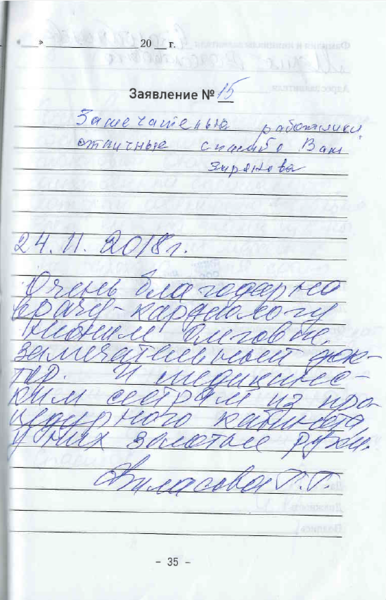 « » 20 г.
Заявление № 15
Замечательные работники,
отличные спасибо Вам
24.11.2018г.
Очень благодарна
врачу-кардиологу
замечательный док-
тер. И медицинс-
ким сестрам из про-
цедурного кабинета
у них золотые руки.
Власова Г.Г.
- 35 -